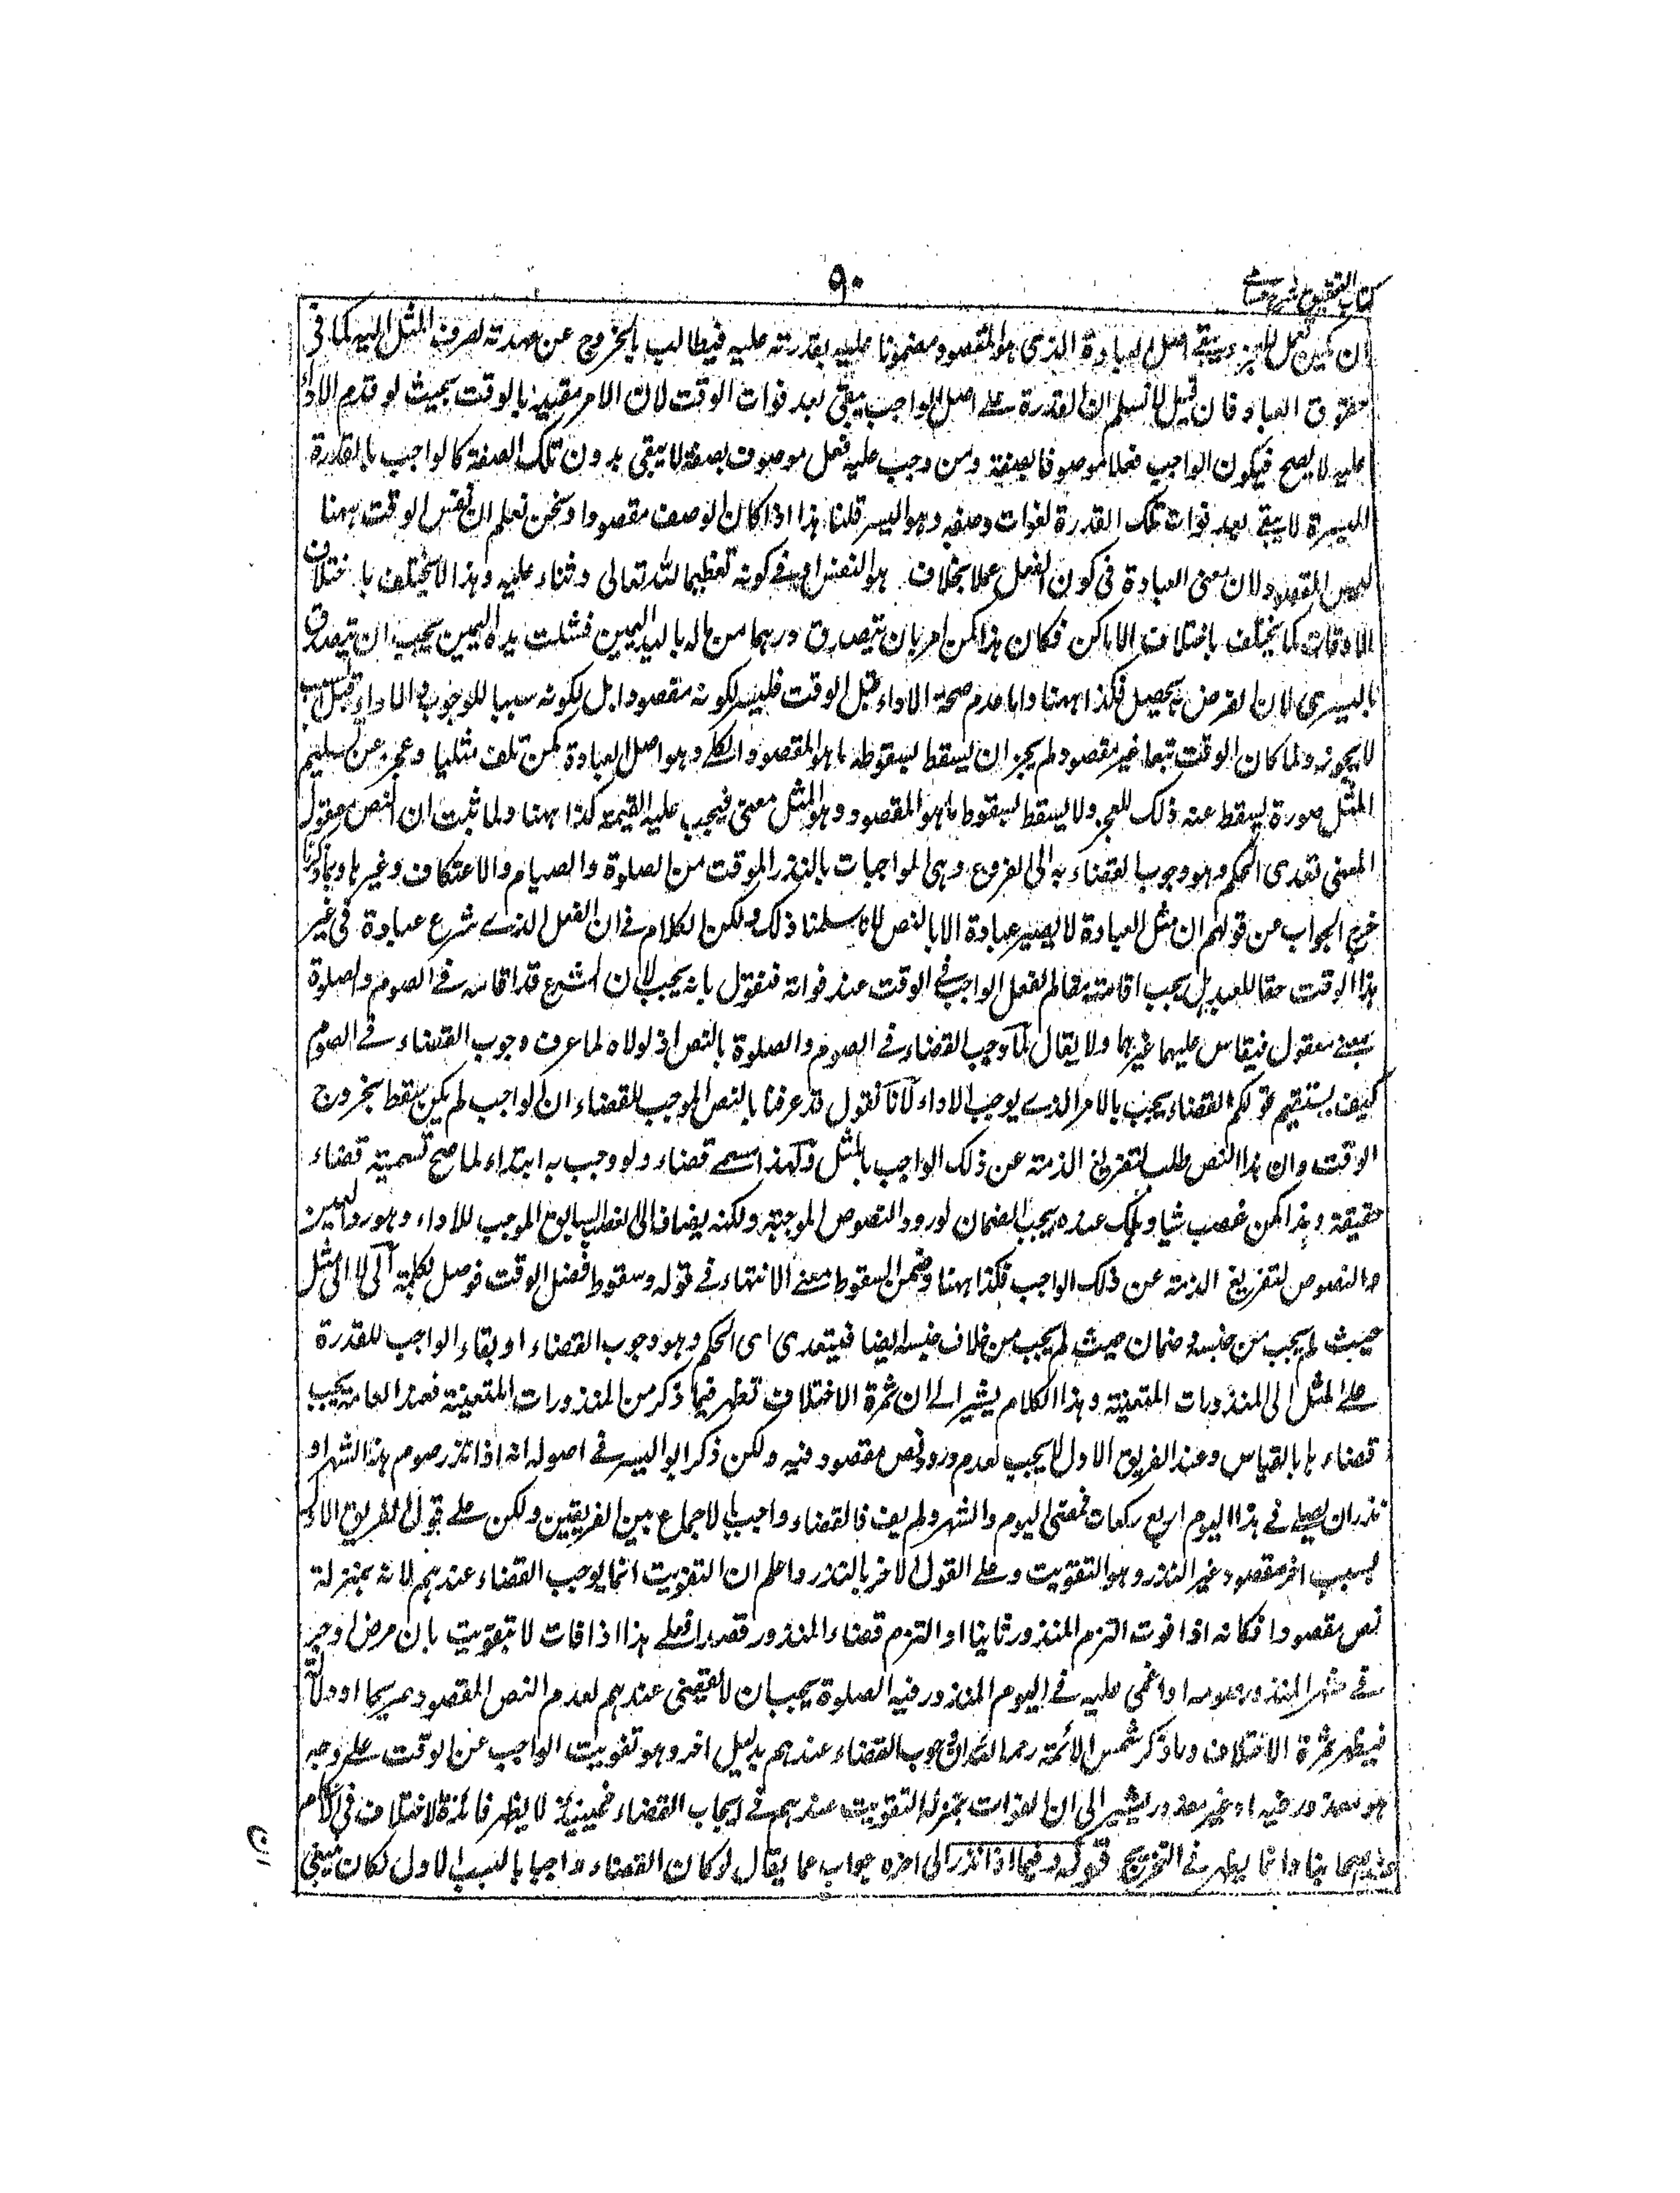 كتاب التحقيق شرح حسامى
٩٠
ان لم يكن للعجز ويبقى اصل العبادة الذى هو المقصود مضمونا عليه بقدرته عليه فيطالب بالخروج عن عهدته بصرف المثل اليه كما فى
حقوق العباد فان قيل لا نسلم ان القدرة على اصل الواجب تبقى بعد فوات الوقت لان الامر مقيد بالوقت بحيث لو قدم الاداء
عليه لا يصح فيكون الواجب فعلا موصوفا بصفة ومن وجب عليه فعل موصوف بصفة لا يبقى بدون تلك الصفة كالواجب بالقدرة
الميسرة لا يبقى بعد فوات تلك القدرة لفوات وصفه وهو اليسر قلنا هذا اذا كان الوصف مقصودا ونحن نعلم ان نفس الوقت ههنا
ليس المقصود لان معنى العبادة فى كون الفعل عملا بخلاف هو النفس او فى كونه تعظيما لله تعالى وثناء عليه وهذا لا يختلف باختلاف
الاوقات كما لا يختلف باختلاف الاماكن فكان هذا كمن امر بان يتصدق درهما من ماله باليد اليمين فشلت يده اليمين يجب ان يتصدق
باليسرى لان الغرض به يحصل فكذا ههنا واما عدم صحة الاداء قبل الوقت فليس لكونه مقصودا بل لكونه سببا للوجوب والاداء قبل السبب
لا يجوز ولما كان الوقت تبعا غير مقصود لم يجز ان يسقط بسقوطه ما هو المقصود الكلى وهو اصل العبادة كمن تلف مثليا وعجز عن تسليم
المثل صورة يسقط عنه ذلك للعجز ولا يسقط بسقوط ما هو المقصود وهو المثل معنى فيجب عليه القيمة كذا ههنا ولما ثبت ان النص معقول
المعنى تعدى الحكم وهو وجوب القضاء به الى الفروع وهى الواجبات بالنذر الموقت من الصلوة والصيام والاعتكاف وغيرها وبما ذكرنا
خرج الجواب عن قولهم ان مثل العبادة لا يصير عبادة الا بالنص لانا سلمنا ذلك ولكن الكلام فى ان الفعل الذى شرع عبادة فى غير
هذا الوقت حقا للعبد هل يجب اقامته مقام الفعل الواجب فى الوقت عند فواته فنقول بانه يجب لان الشرع قد اقامه فى الصوم والصلوة
بمعنى معقول فيقاس عليهما غيرهما ولا يقال لما وجب القضاء فى الصوم والصلوة بالنص اذ لولاه لما عرف وجوب القضاء فى الصوم
كيف يستقيم قولكم القضاء يجب بالامر الذى يوجب الاداء لانا نقول قد عرفنا بالنص الموجب للقضاء ان الواجب لم يكن يسقط بخروج
الوقت وان هذا النص طلب لتفريغ الذمة عن ذلك الواجب بالمثل ولهذا سمى قضاء ولو وجب به ابتداء لما صح تسميته قضاء
حقيقة وهذا كمن غصب شيا وهلك عنده يجب الضمان لورود النصوص الموجبة ولكنه يضاف الى الغصب السابق الموجب للاداء وهو رد العين
والنصوص لتفريغ الذمة عن ذلك الواجب فكذا ههنا وضمن السقوط معنى الانتهاء فى قوله وسقوط فضل الوقت فوصل بكلمة الى لا الى مثل
حيث لم يجب من جنسه وضمان حيث لم يجب من خلاف جنسه ايضا فيتعدى اى الحكم وهو وجوب القضاء او بقاء الواجب للقدرة
على المثل الى المنذورات المتعينة وهذا الكلام يشير الى ان ثمرة الاختلاف تظهر فيما ذكر من المنذورات المتعينة فعند العامة يجب
قضاءها بالقياس وعند الفريق الاول لا يجب لعدم ورود نص مقصود فيه ولكن ذكر ابو اليسر فى اصوله انه اذا نذر صوم هذا الشهر او
نذر ان يصلى فى هذا اليوم اربع ركعات فمضى اليوم والشهر ولم يف فالقضاء واجب بالاجماع بين الفريقين ولكن على قول الفريق الاول
بسبب اخر مقصود غير النذر وهو التفويت وعلى القول الاخر بالنذر واعلم ان التفويت انما يوجب القضاء عندهم لانه بمنزلة
نص مقصود فكانه اذا فوت التزم المنذور ثانيا او التزم قضاء المنذور قصدا فعلى هذا اذا فات لا بتفويت بان مرض او جن
فى شهر المنذور صومه او اغمى عليه فى اليوم المنذور فيه الصلوة يجب ان لا يقضى عندهم لعدم النص المقصود صريحا او دلالة
فيظهر ثمرة الاختلاف وما ذكر شمس الائمة رحمه الله ان وجوب القضاء عندهم بدليل اخر وهو تفويت الواجب عن الوقت على وجه
هو معذور فيه او غير معذور يشير الى ان الفوات بمنزلة التفويت عندهم فى ايجاب القضاء فحينئذ لا يظهر فائدة الاختلاف فى الاحكام
عند اصحابنا وانما يظهر فى التخريج قوله وفيما اذا نذر الى اخره جواب عما يقال لو كان القضاء واجبا بالسبب الاول لكان ينبغى
ان